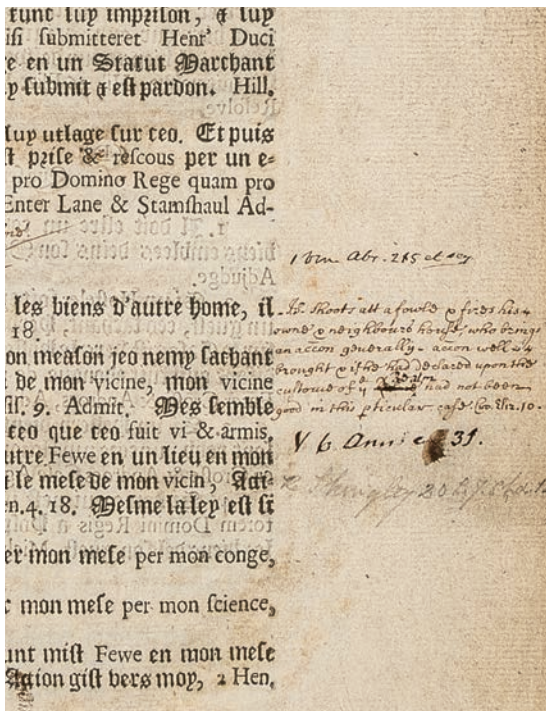 tunc luy imprison, & luy
isi submitteret Henr' Duci
e en un Statut Marchant
y submit & est pardon. Hill.
luy utlage sur ceo. Et puis
st prise & rescous per un e-
pro Domino Rege quam pro
Enter Lane & Stamshaul Ad-
les biens d'autre home, il
18.
on meason jeo nemy sachant
de mon vicine, mon vicine
ss. 9. Admit. Mes semble
ceo que ceo fuit vi & armis,
utre Fewe en un lieu en mon
i le mese de mon vicin,
en. 4. 18. Mesme la ley est si
er mon mese per mon conge,
c mon mese per mon science,
unt mist Fewe en mon mese
Action gist vers moy, 2 Hen.
Adjudge.
1 Abr. 215 et seq
If Shoots att a fowle & fires his
owne & neighbours house, who brings
an accon generally. accon well
brought & if he had declared upon the
custome of ye had not been
good in this pticular case. Co. Eliz. 10.
V 6 Ann: c 31.